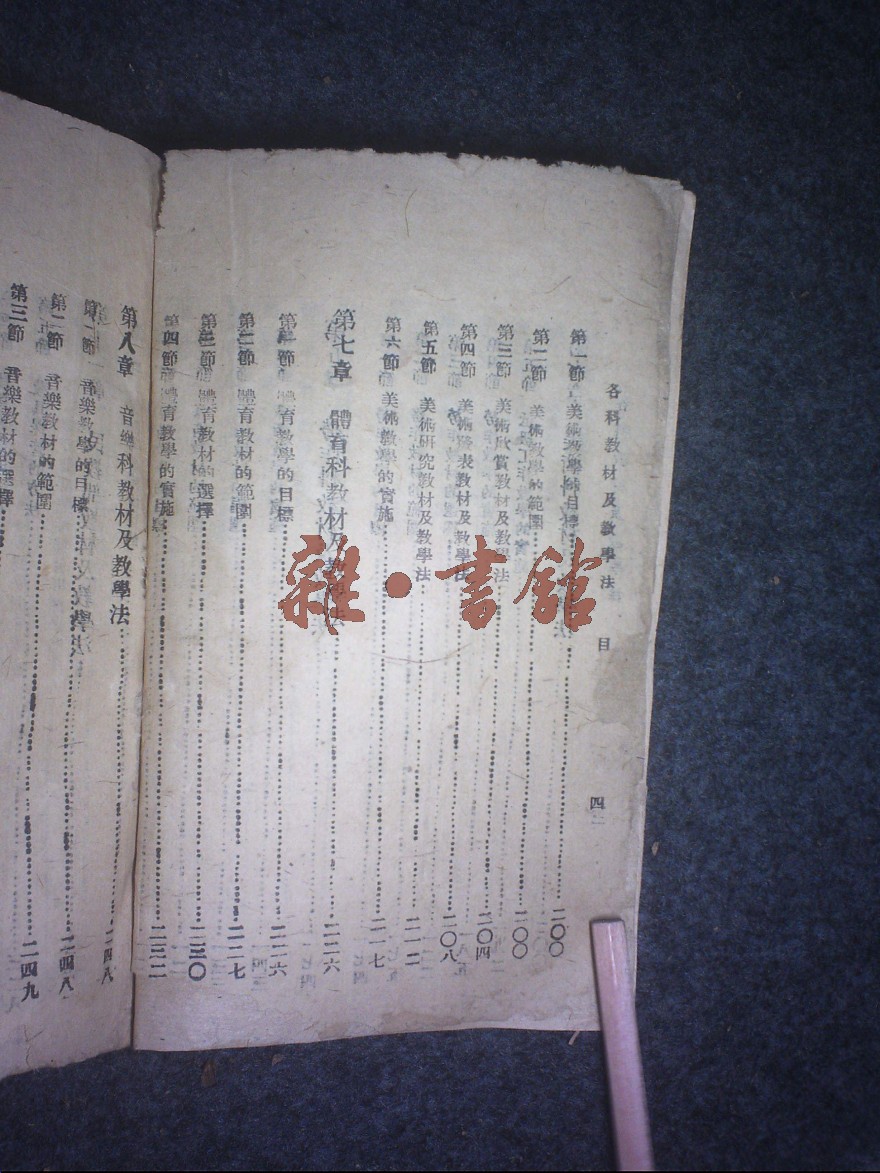 各科教材及教學法　目　四
第一節　美術教學的目標　二〇〇
第二節　美術教學的範圍　二〇〇
第三節　美術欣賞教材及教學法　二〇四
第四節　美術發表教材及教學法　二〇八
第五節　美術研究教材及教學法　二一二
第六節　美術教學的實施　二一七
第七章　體育科教材及教學法　二二六
第一節　體育教學的目標　二二六
第二節　體育教材的範圍　二二七
第三節　體育教材的選擇　二三〇
第四節　體育教學的實施　二三二
第八章　音樂科教材及教學法　二四八
第一節　音樂教學的目標　二四八
第二節　音樂教材的範圍　二四九
第三節　音樂教材的選擇
雜·書館